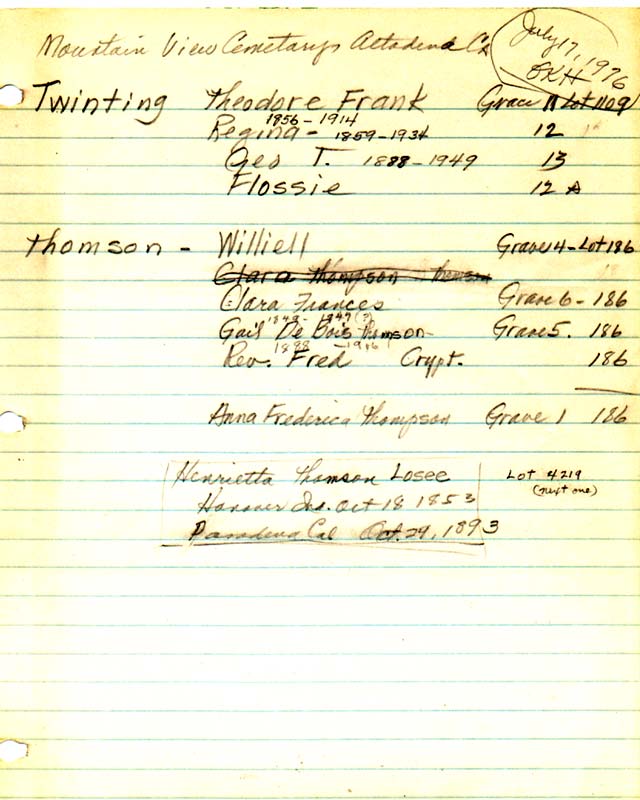 July 17, 1976
OKH
Mountain View Cemetarys Altadena Ca
Twinting Theodore Frank Grave 11 Lot 1109
1856-1914
Regina - 1859-1934 12
Geo T. 1888-1949 13
Flossie 12 A
Thomson - Williell Grave 4 - Lot 186
Clara Thompson Thomson
Clara Frances Grave 6 - 186
Gail De Bois Thomson Grave 5. 186
Rev. Fred Crypt. 186
Anna Frederica Thompson Grave 1 186
Henrietta Thomson Losee Lot 4219
(next one)
Hanover Ind. Oct 18 1853
Pasadena Cal Oct. 29, 1893